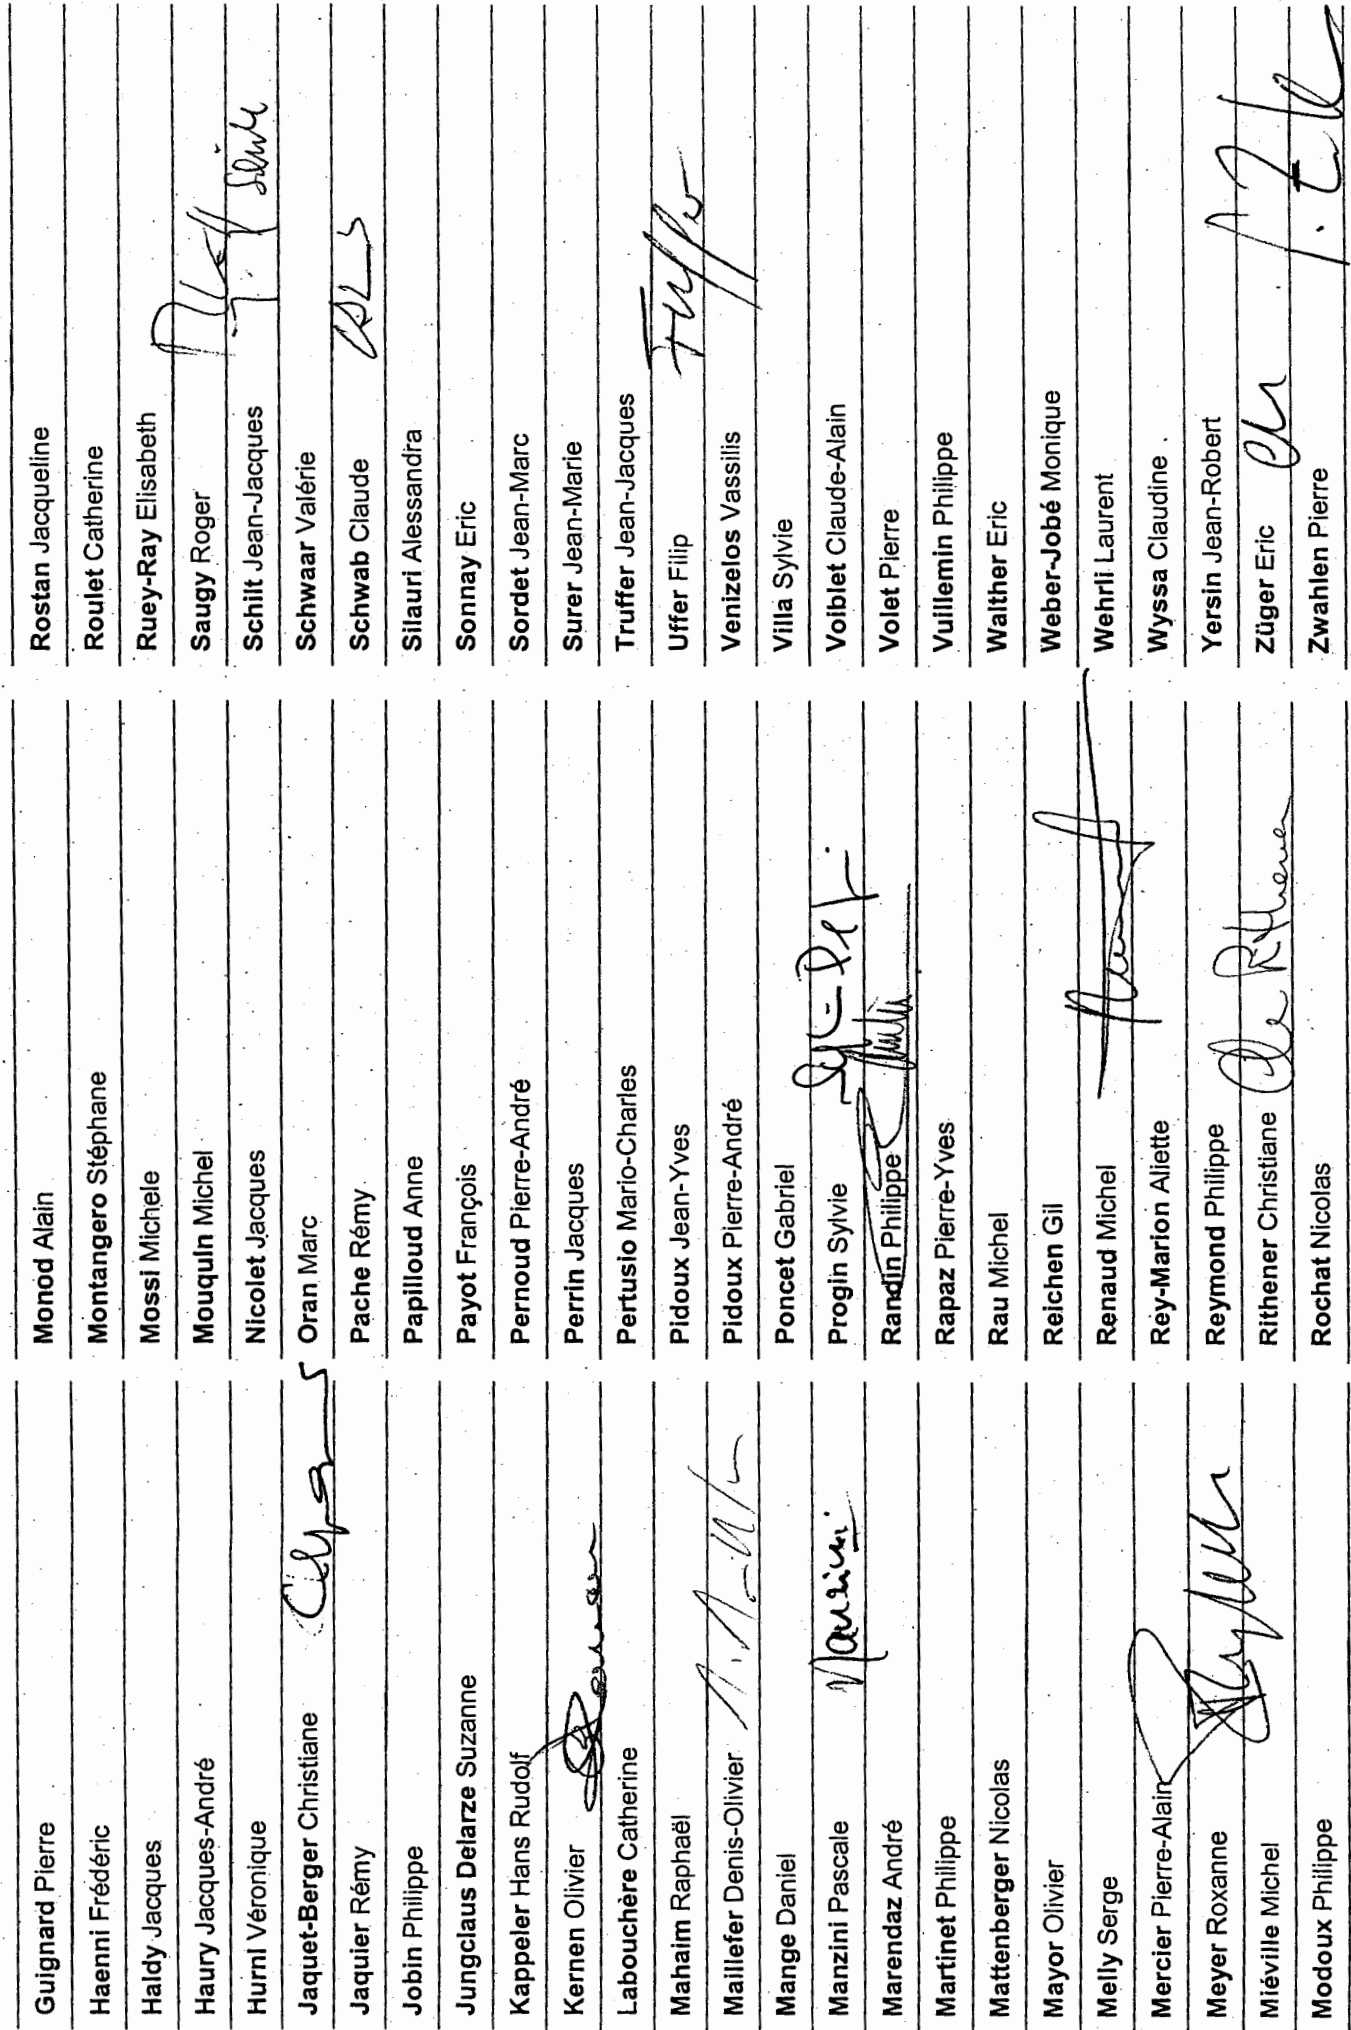 Guignard Pierre
Haenni Frédéric
Haldy Jacques
Haury Jacques-André
Hurni Véronique
Jaquet-Berger Christiane
Jaquier Rémy
Jobin Philippe
Jungclaus Delarze Suzanne
Kappeler Hans Rudolf
Kernen Olivier
Labouchère Catherine
Mahaim Raphaël
Maillefer Denis-Olivier
Mange Daniel
Manzini Pascale Manzini
Marendaz André
Martinet Philippe
Mattenberger Nicolas
Mayor Olivier
Melly Serge
Mercier Pierre-Alain
Meyer Roxanne
Miéville Michel
Modoux Philippe
Monod Alain
Montangero Stéphane
Mossi Michele
Mouquin Michel
Nicolet Jacques
Oran Marc
Pache Rémy
Papilloud Anne
Payot François
Pernoud Pierre-André
Perrin Jacques
Pertusio Mario-Charles
Pidoux Jean-Yves
Pidoux Pierre-André
Poncet Gabriel
Progin Sylvie
Randin Philippe
Rapaz Pierre-Yves
Rau Michel
Reichen Gil
Renaud Michel
Rey-Marion Aliette
Reymond Philippe
Rithener Christiane Rithener
Rochat Nicolas
Rostan Jacqueline
Roulet Catherine
Ruey-Ray Elisabeth
Saugy Roger
Schilt Jean-Jacques
Schwaar Valérie
Schwab Claude
Silauri Alessandra
Sonnay Eric
Sordet Jean-Marc
Surer Jean-Marie
Truffer Jean-Jacques
Uffer Filip
Venizelos Vassilis
Villa Sylvie
Voiblet Claude-Alain
Volet Pierre
Vuillemin Philippe
Walther Eric
Weber-Jobé Monique
Wehrli Laurent
Wyssa Claudine
Yersin Jean-Robert
Züger Eric
Zwahlen Pierre